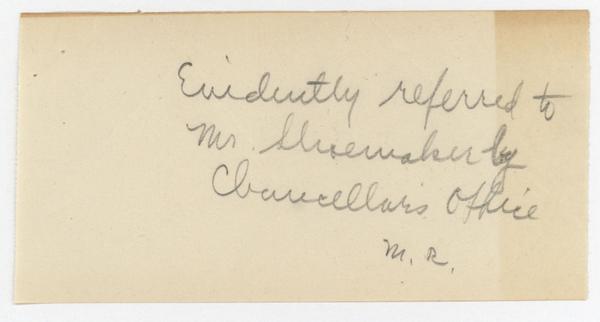 Evidently referred to
Mr. Shoemaker by
Chancellor's Office
M. R.